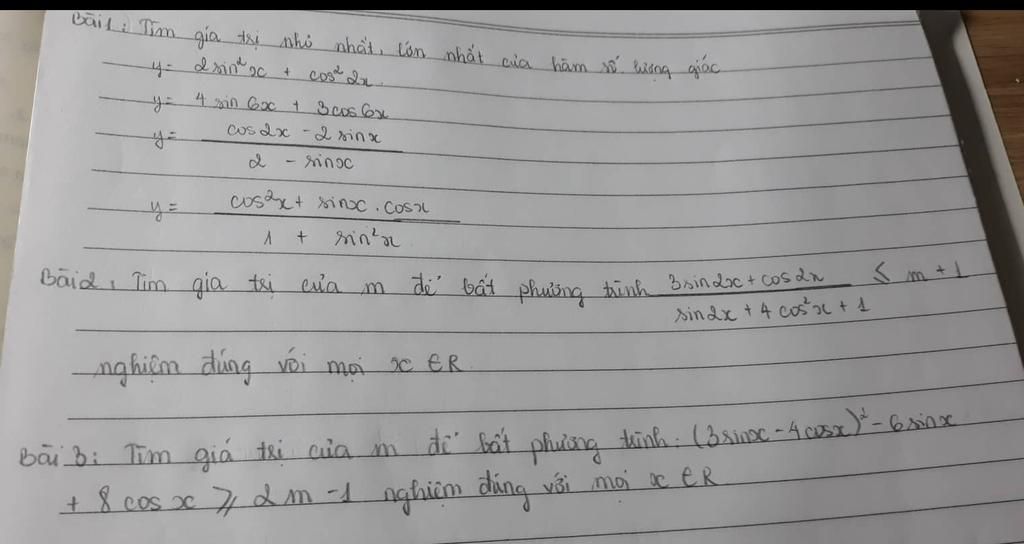 Bài 1: Tìm gía trị nhỏ nhất, lớn nhất của hàm số lượng giác
y = 2sin²x + cos²2x
y = 4 sin 6x + 3cos6x
y = (cos2x - 2 sinx) / (2 - sinx)
y = (cos²x + sinx . cosx) / (1 + sin²x)
Bài 2, Tìm gía trị của m để bất phương trình (3sin2x + cos2x) / (sin2x + 4cos²x + 1) ≤ m + 1
nghiệm đúng với mọi x ∈ R
Bài 3: Tìm giá trị của m để bất phương trình: (3sinx - 4cosx)² - 6sinx
+ 8 cos x ≥ 2m - 1 nghiệm đúng với mọi x ∈ R